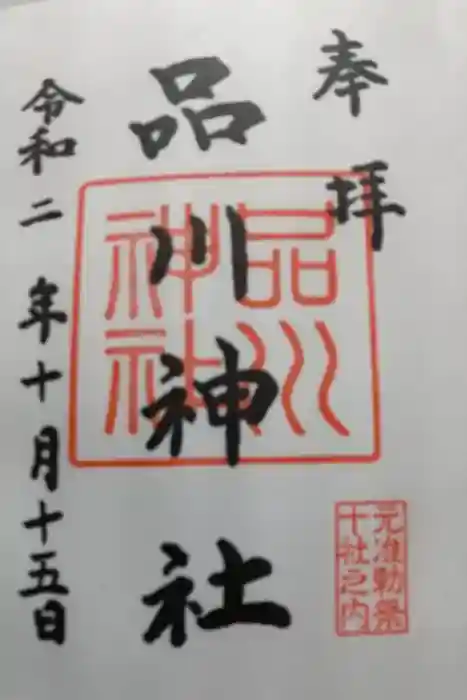 奉拝
品川神社
品川神社
元准勅祭
十社之内
令和二年十月十五日